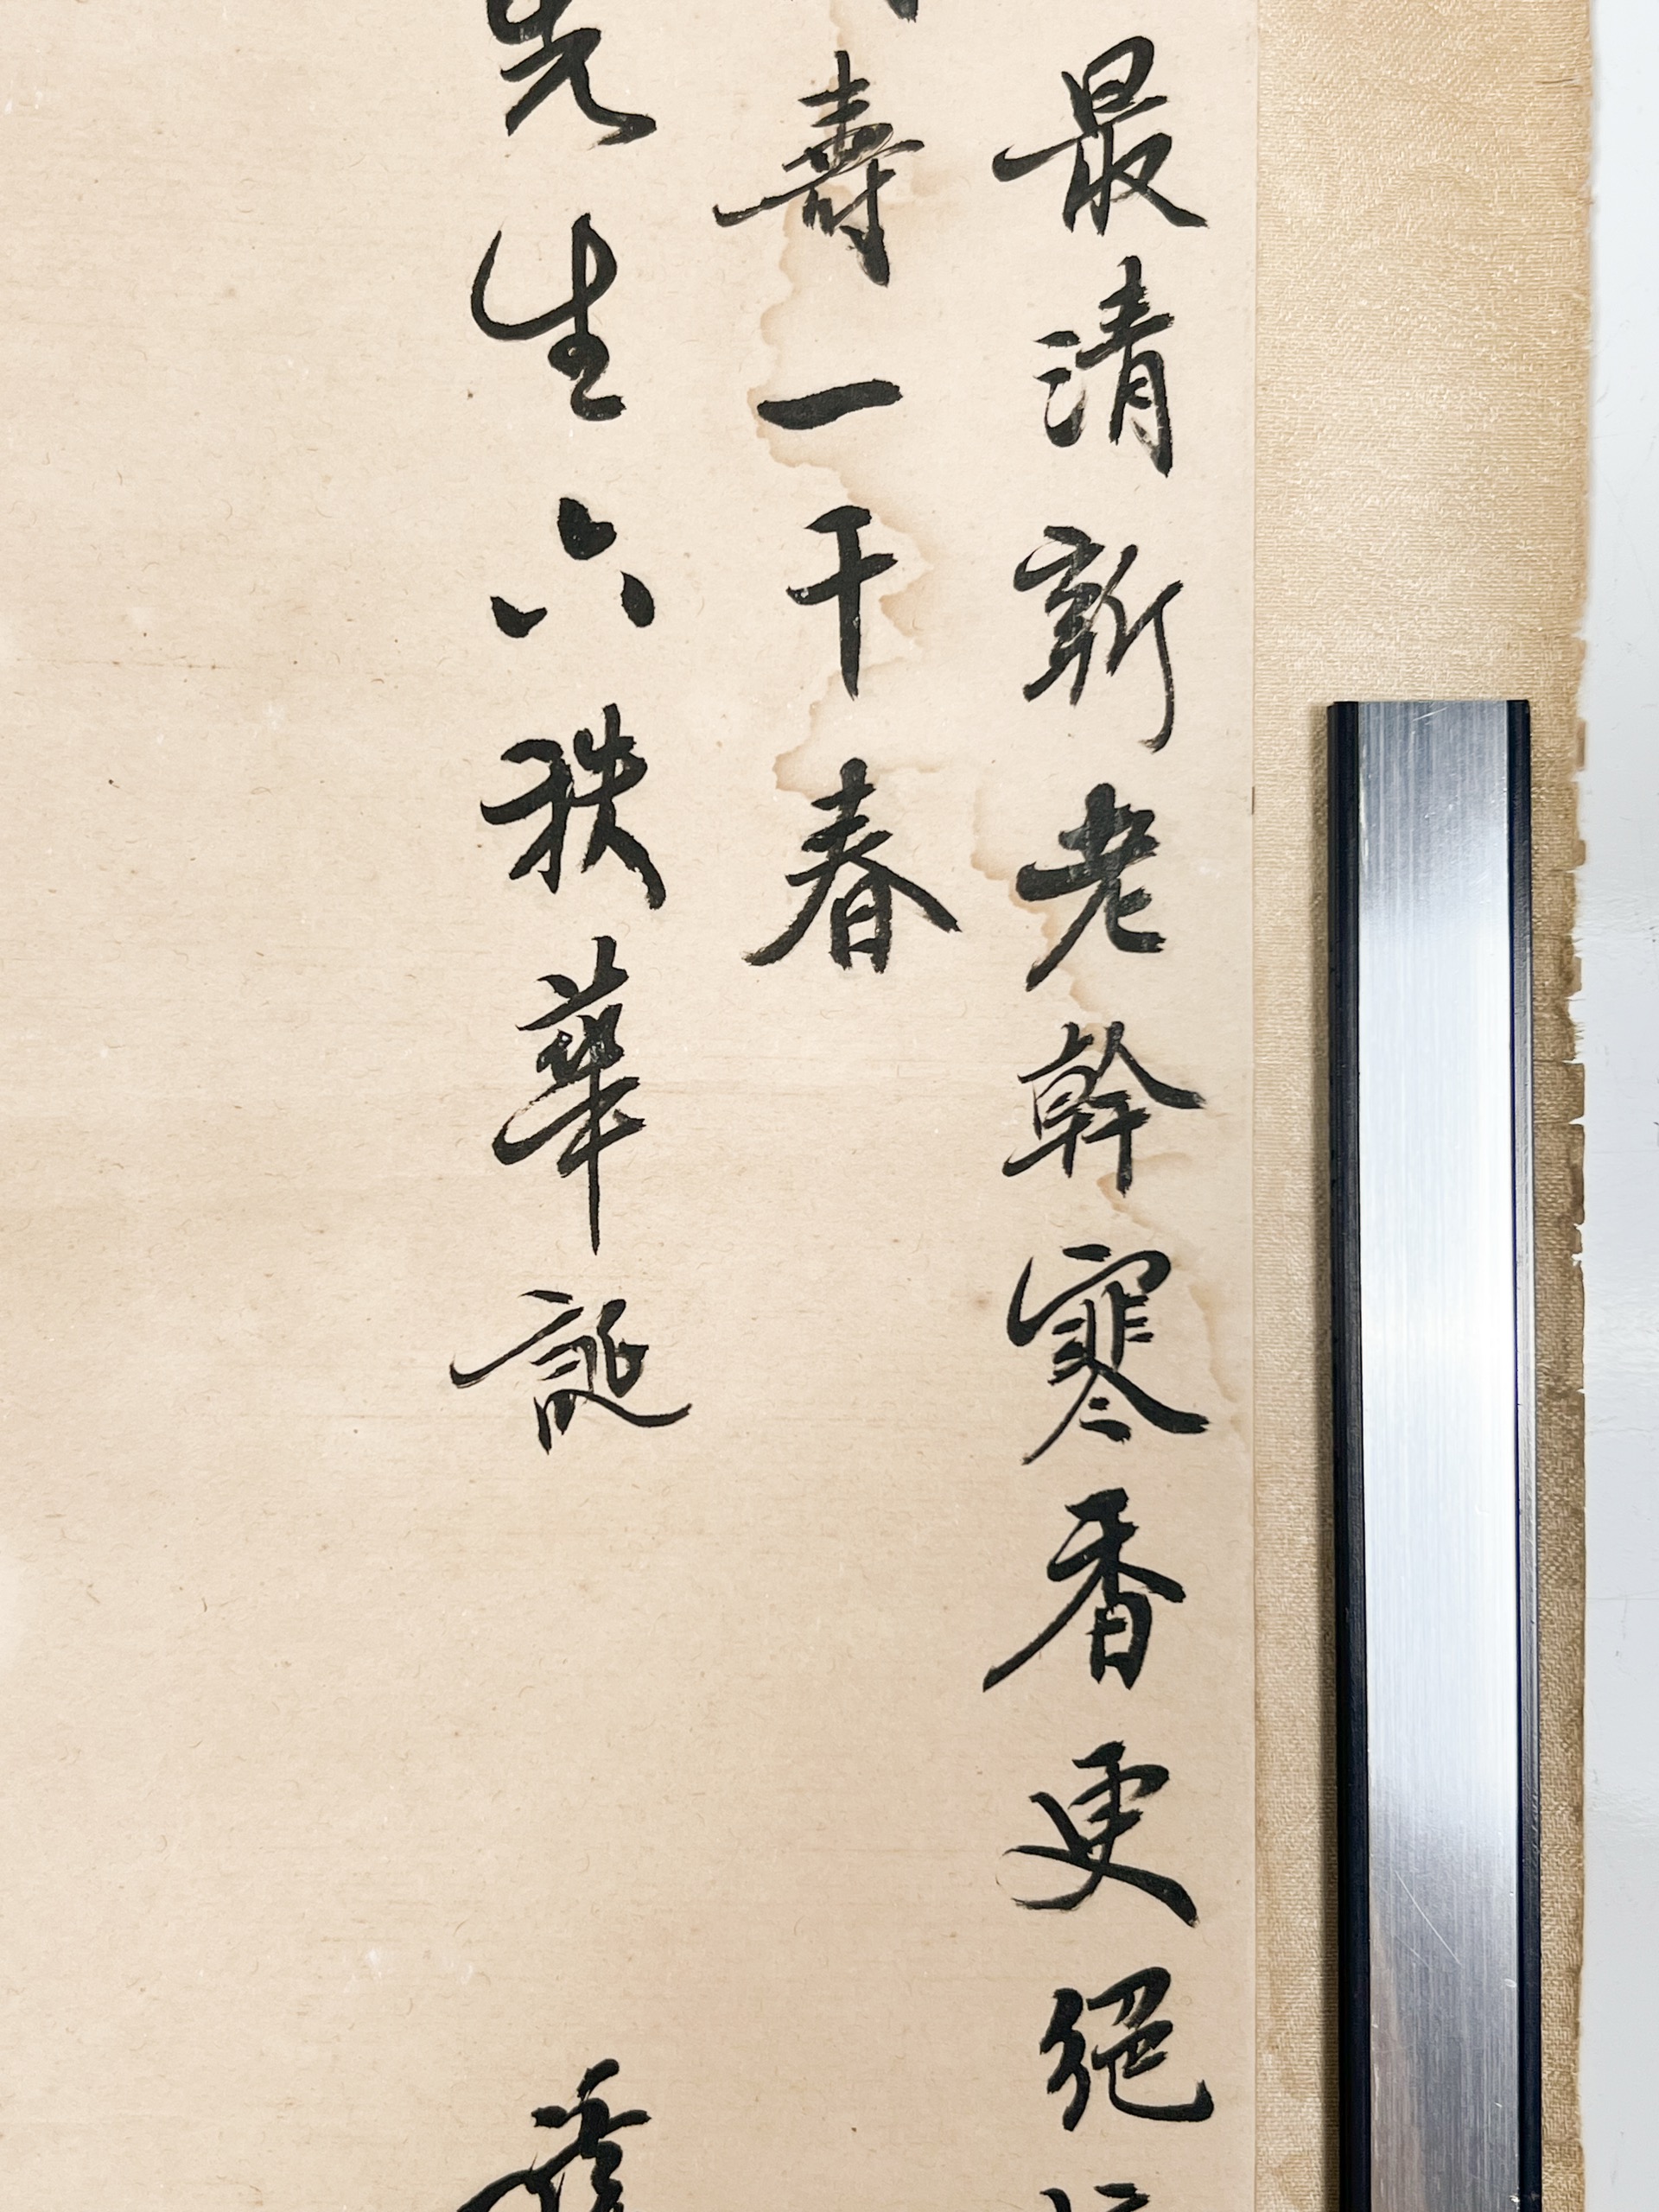 最清新老幹寒香更絕
壽一千春
先生六秩華誕